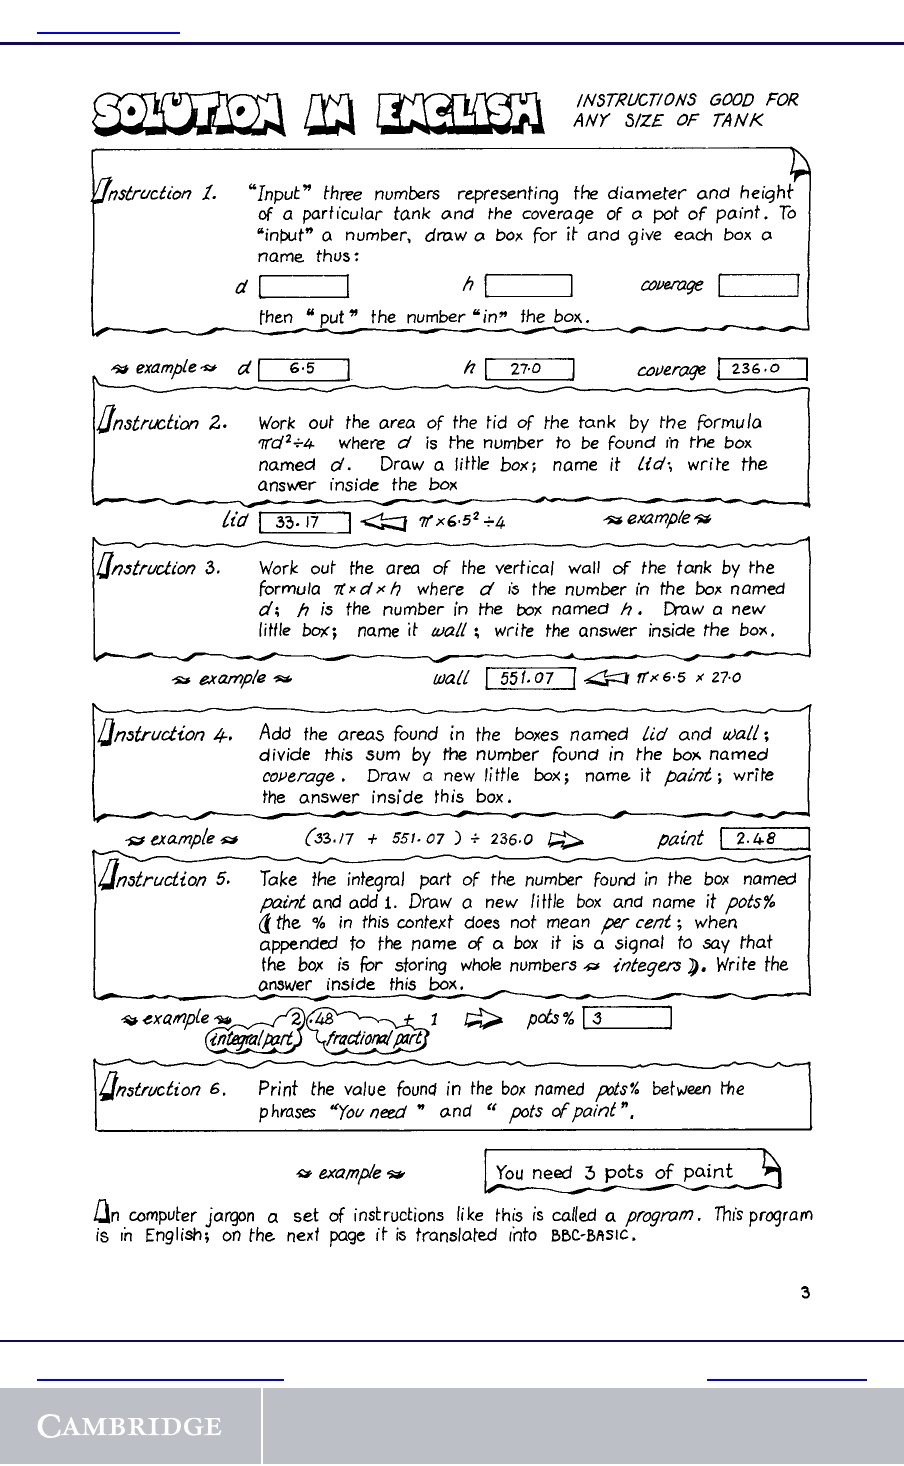 SOLUTION IN ENGLISH
INSTRUCTIONS GOOD FOR
ANY SIZE OF TANK
Instruction 1. "Input" three numbers representing the diameter and height
of a particular tank and the coverage of a pot of paint. To
"input" a number, draw a box for it and give each box a
name thus:
d h coverage
then "put" the number "in" the box.
example d 6.5 h 27.0 coverage 236.0
Instruction 2. Work out the area of the lid of the tank by the formula
πd²÷4 where d is the number to be found in the box
named d. Draw a little box; name it lid; write the
answer inside the box
lid 33.17 π×6.5²÷4 example
Instruction 3. Work out the area of the vertical wall of the tank by the
formula π×d×h where d is the number in the box named
d; h is the number in the box named h. Draw a new
little box; name it wall; write the answer inside the box.
example wall 551.07 π×6.5 × 27.0
Instruction 4. Add the areas found in the boxes named lid and wall;
divide this sum by the number found in the box named
coverage. Draw a new little box; name it paint; write
the answer inside this box.
example (33.17 + 551.07) ÷ 236.0 paint 2.48
Instruction 5. Take the integral part of the number found in the box named
paint and add 1. Draw a new little box and name it pots%
(the % in this context does not mean per cent; when
appended to the name of a box it is a signal to say that
the box is for storing whole numbers ~ integers). Write the
answer inside this box.
example 2 .48 + 1 pots% 3
integral part fractional part
Instruction 6. Print the value found in the box named pots% between the
phrases "You need " and " pots of paint".
example You need 3 pots of paint
In computer jargon a set of instructions like this is called a program. This program
is in English; on the next page it is translated into BBC-BASIC.
3
CAMBRIDGE